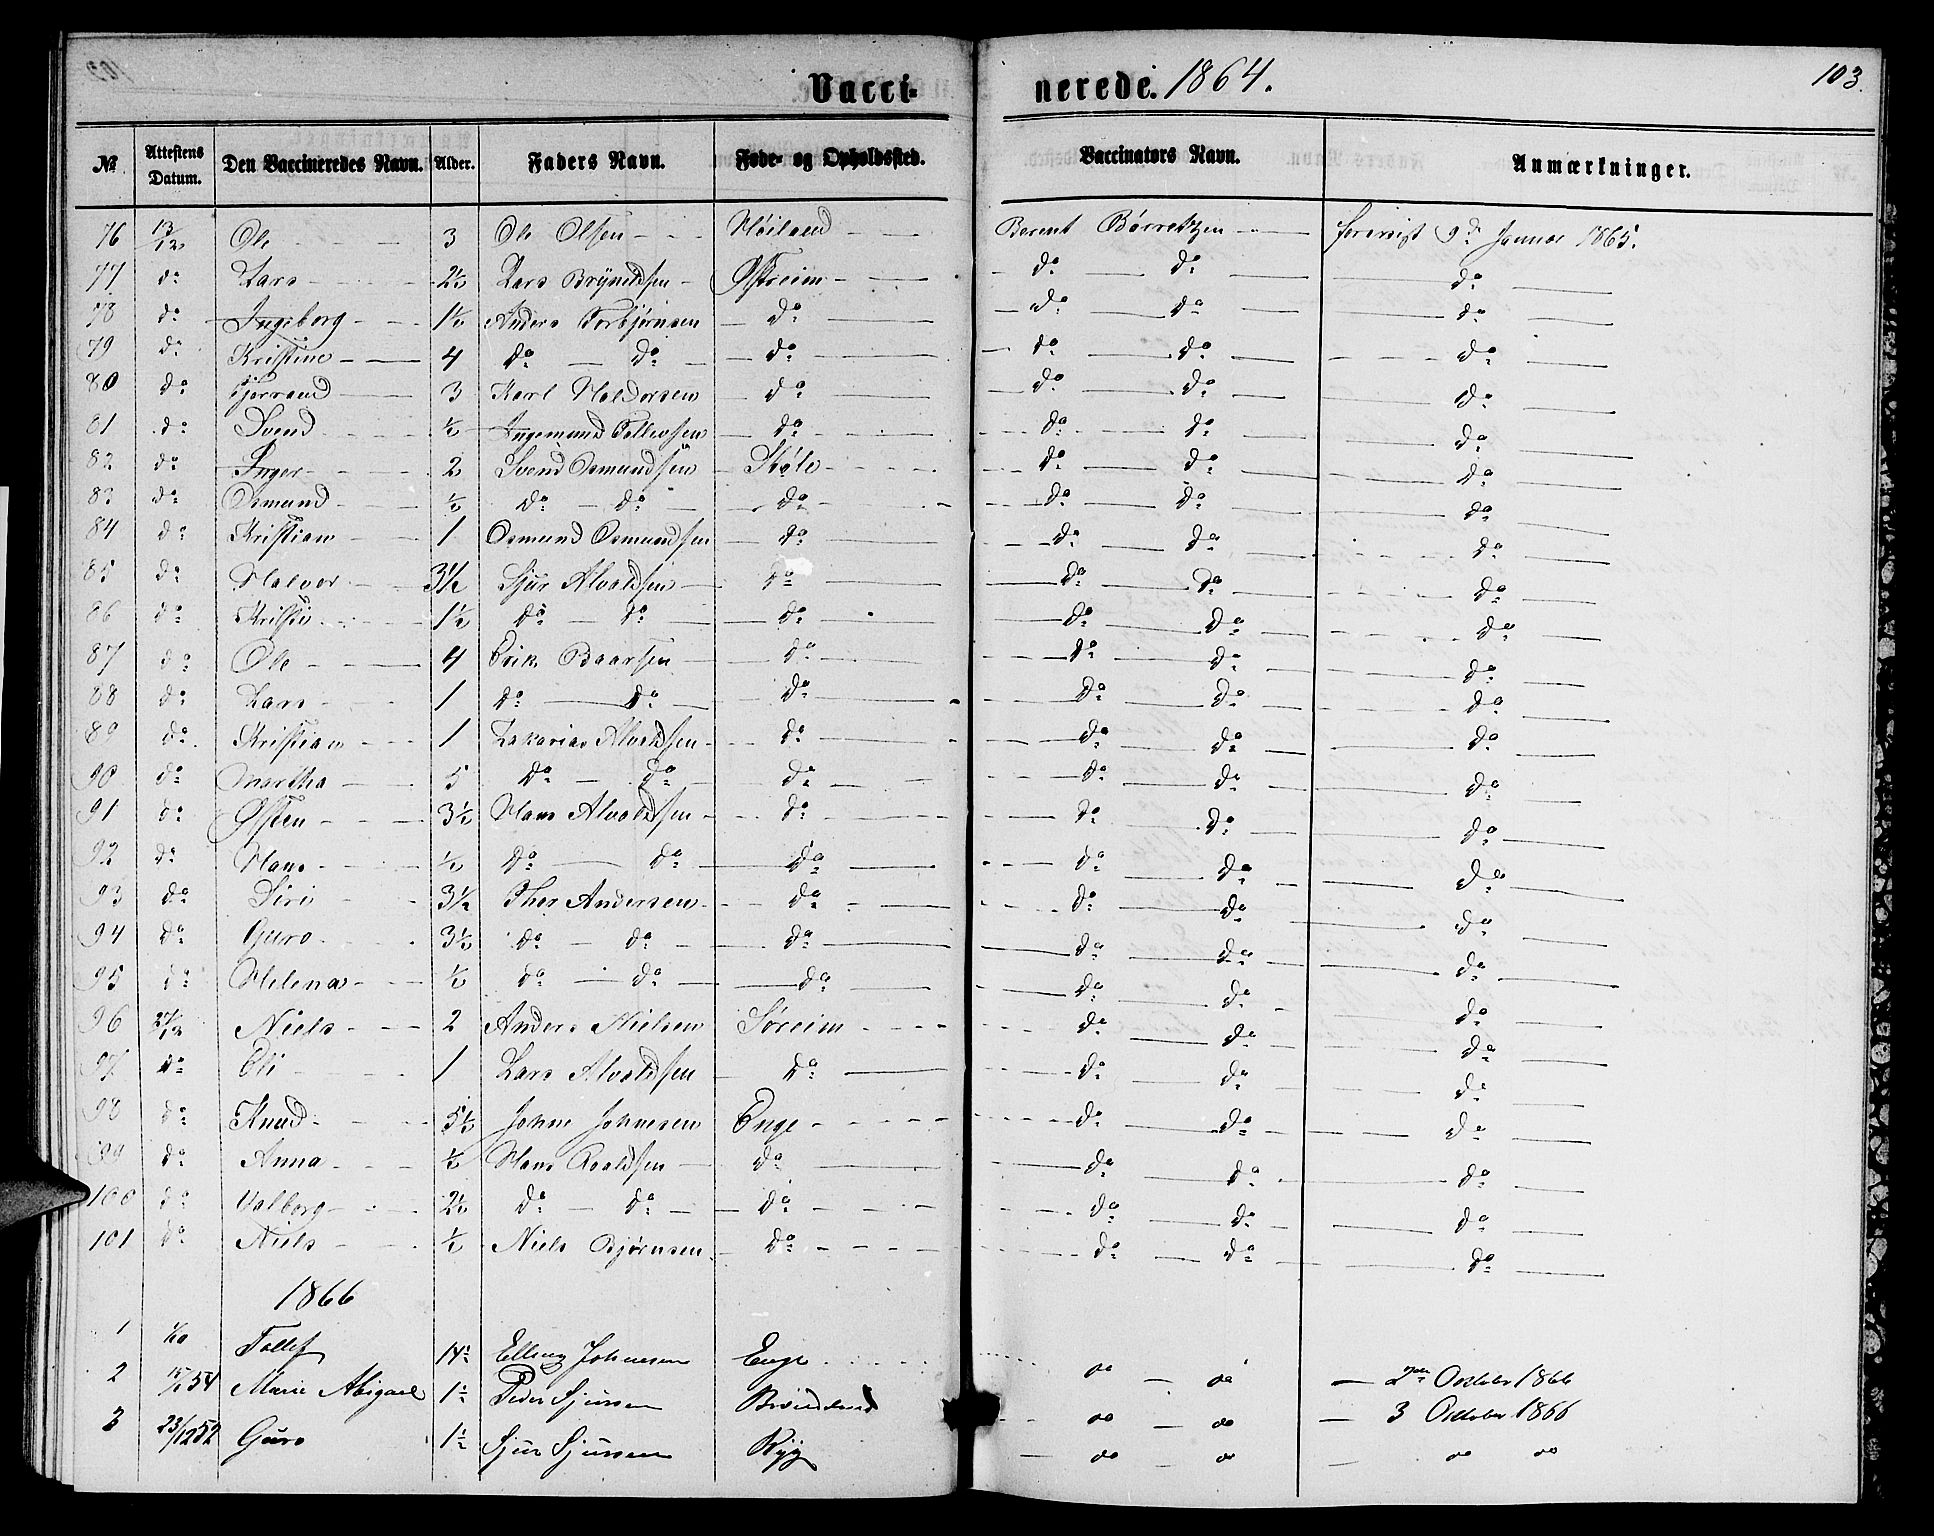 Vaccinerede. 1864. 103.
№ Attestens Datum. Den Vaccineredes Navn. Alder. Faders Navn. Føde- og Opholdssted. Vaccinators Navn. Anmærkninger.
76 13/12 Ole 3 Ole Olsen Høiland Berent Børretzen forevist 9de Januar 1865.
77 do Lars 2½ Lars Brynildsen Østreim do do do
78 do Ingeborg 1½ Anders Torbjørnsen do do do do
79 do Kristine 4 do do do do do do
80 do Gjerraud 3 Karl Haldorsen do do do do
81 do Svend ½ Ingemund Tollevsen do do do do
82 do Inger 2 Svend Osmundsen Støle do do do
83 do Osmund ½ do do do do do do
84 do Kristian 1 Osmund Osmundsen do do do do
85 do Halvor 3½ Sjur Alvaldsen do do do do
86 do Kristi 1½ do do do do do do
87 do Ole 4 Erik Baarsen do do do do
88 do Lars 1 do do do do do do
89 do Kristian 1 Zakarias Alvaldsen do do do do
90 do Martha 5 do do do do do do
91 do Østen 3½ Hans Alvaldsen do do do do
92 do Hans ½ do do do do do do
93 do Siri 3½ Thor Andersen do do do do
94 do Guro 3½ do do do do do do
95 do Helena ½ do do do do do do
96 27/12 Niels 2 Anders Nielsen Søreim do do do
97 do Eli 1 Lars Alvaldsen do do do do
98 do Knud 5½ Johne Johnesen Enge do do do
99 do Anna ½ Hans Roaldsen do do do do
100 do Valborg 2½ do do do do do do
101 do Niels ½ Niels Bjørnsen do do do do
1866
1 1/10 Tollef 14 Elling Johnesen Enge do 2den October 1866
2 54 Marie Abigael 1½ Peder Sjursen do do 3 October 1866
3 23/12 52 Guro 1½ Sjur Sjursen Ryg do do do do